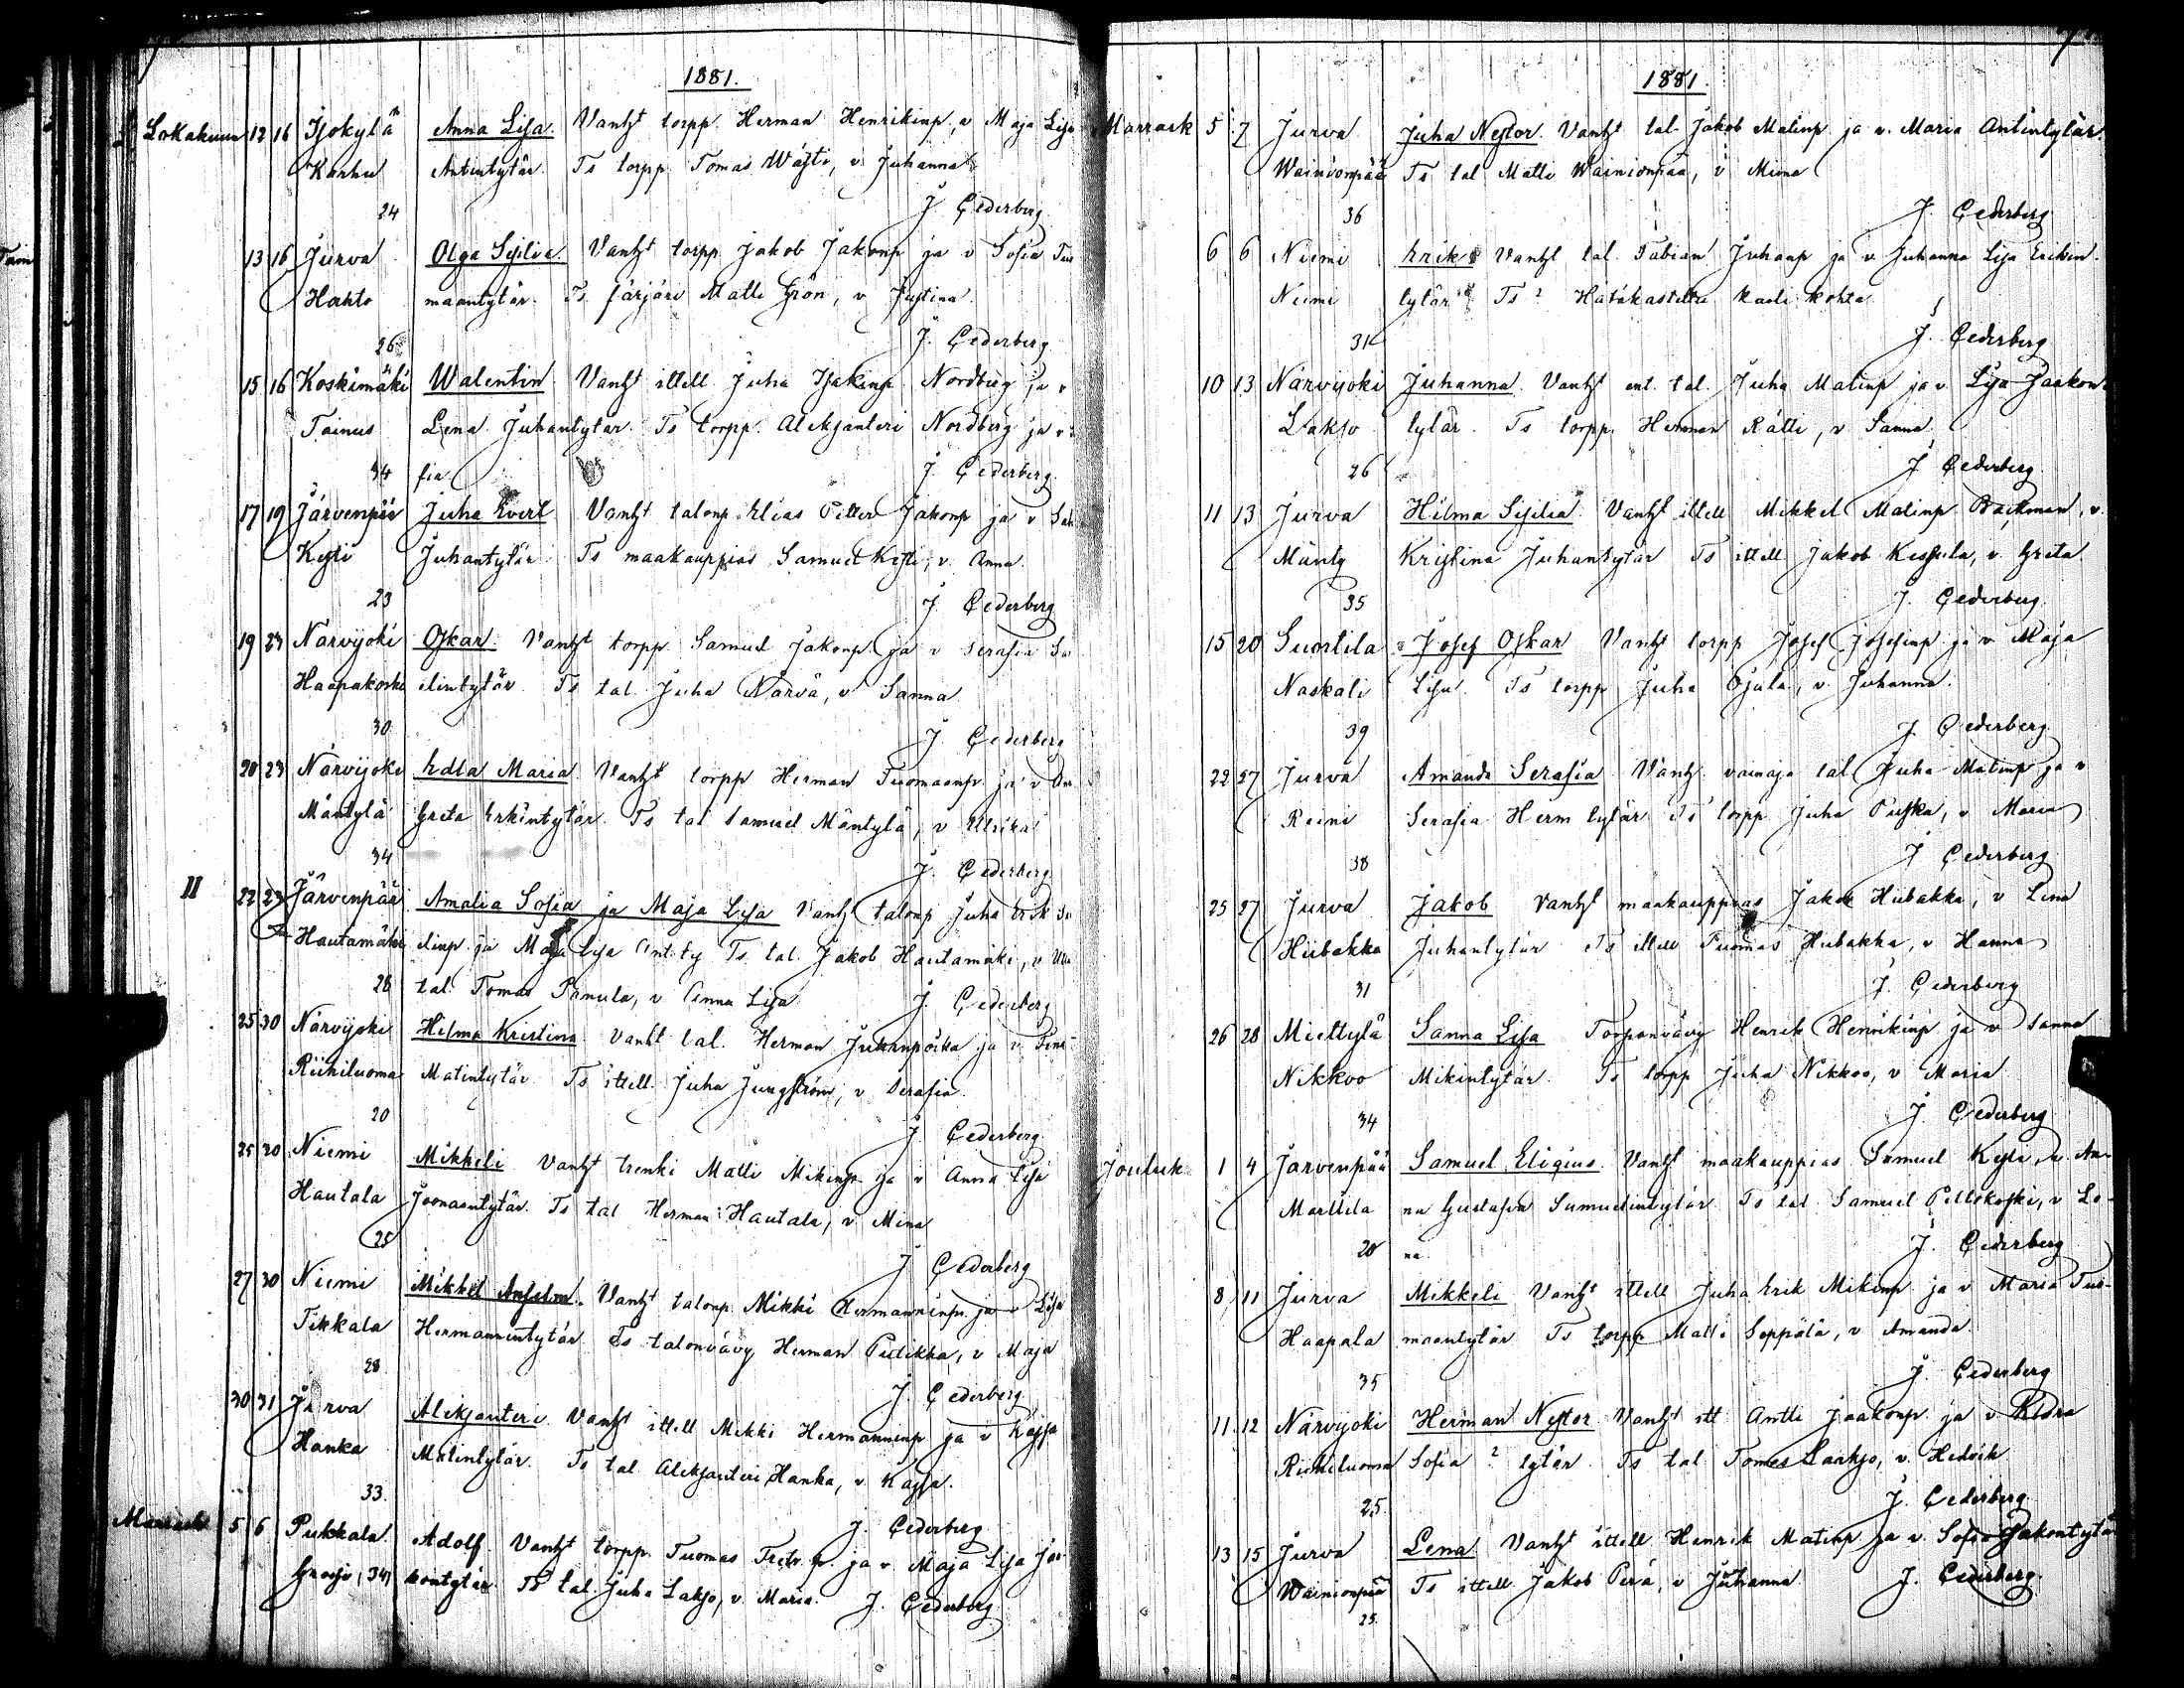 1881.
Lokakuun 12 16 Isokylä Anna Lisa. Vanht torpp. Herman Henrikinp, v Maja Lisa
Karhu Antintytär. Ts torpp Tomas Wästi, v Juhanna
24 J. Cederberg
13 16 Jurva Olga Sesilia. Vanht torpp. Jakob Jakonp ja v Sofia Tuo
Hahto maantytär. Ts färjäri Matti Grön, v Justina
26 J. Cederberg
15 16 Koskimäki Walentin Vanht ittell Juha Isakinp Nordbug ja v
Tainus Lena Juhantytär. Ts torpp. Aleksanteri Nordberg ja v:
34 fia J. Cederberg
17 19 Järvenpää Juha Evert Vanht talonp. Elias Petter Jakonp ja v
Kysti Juhantytär Ts maakauppias Samuel Kysti, v Anna
23 J. Cederberg
19 23 Närvijoki Oskar. Vanht torpp Samuel Jakonp. ja v Serafia
Haapakoski elintytär Ts tal. Juha Närvä, v Sanna
30 J. Cederberg
20 23 Närvijoki Edla Maria Vanht torpp Herman Tuomaanp ja v
Mäntylä Greta Erkintytär. Ts tal Samuel Mäntylä, v Ulrika
34 J. Cederberg
II 22 23 Järvenpää Amalia Sofia ja Maja Lisa Vanht talonp Juha Erik
Hautamäki elinp ja Maja Lisa Ant.ty Ts tal. Jakob Hautamäki, v
28 tal. Tomas Panula, v Anna Lisa J. Cederberg
25 30 Närvijoki Hilma Kristina Vanht tal. Herman Juhanpoika ja v
Riihiluoma Matintytär Ts ittell. Juha Ljungström, v Serafia
20 J. Cederberg
25 30 Niemi Mikkeli Vanht trenki Matti Mikinp ja v Anna Lisa
Hautala Joonaantytär. Ts tal Herman Hautala, v Mina
25 J. Cederberg
27 30 Niemi Mikkel Anselm. Vanht talonp Mikki Hermanninp ja v Lisa
Tikkala Hermannintytär Ts talonvävy Herman Pulikka, v Maja
28 J. Cederberg
30 31 Jurva Aleksanteri Vanht ittell Mikki Hermanninp ja v Kajsa
Hanka Matintytär. Ts tal Aleksanteri Hanka, v Kajsa.
33. J. Cederberg
Marrask 5 6 Pukkala Adolf. Vanht torpp. Tuomas p ja v Maja Lisa Jaa
(34) kontytär. Ts tal. Juha Lakso, v. Maria. J. Cederberg
1881.
Marrask 5 7 Jurva Juha Nestor. Vanht tal. Jakob Matinp ja v. Maria Antintytär.
Wainionpää Ts tal Matti Wainionpää, v Mina
36 J. Cederberg
6 6 Niemi Erik Vanht tal. Fabian Juhanp ja v Juhanna Lisa Erikin
Niemi tytär Ts? Hätäkastettu kasti kohta
31 J. Cederberg
10 13 Närvijoki Juhanna. Vanht ent. tal. Juha Matinp ja v Lisa Jaakon
Lakso tytär. Ts torpp. Herman Rätti, v Sanna
26 J. Cederberg
11 13 Jurva Hilma Sesilia Vanht ittell Mikkel Matinp Backman, v.
Mänty Kristina Juhantytär Ts ittell Jakob Keskela, v Greta
35 J. Cederberg
15 20 Suortila Josef Oskar Vanht torpp Josef Josefinp ja v Maja
Naskali Lisa. Ts torpp Juha Ojala, v. Juhanna.
39 J. Cederberg
22 27 Jurva Amanda Serafia Vanht. vaivaja tal Juha Matinp ja v
Reini Serafia Herm tytär Ts torpp Juha Puska, v Maria
38 J. Cederberg
25 27 Jurva Jakob Vanht maakauppias Jakob Hiibakka, v Lena
Hiibakka Juhantytär Ts ittell Tuomas Hiibakka, v Hanna
31 J. Cederberg
26 28 Miettylä Sanna Lisa Torpanvävy Henrik Henrikinp ja v Sanna
Nikkoo Mikintytär. Ts torpp Juha Nikkoo, v Maria
34 J. Cederberg
Jouluk 1 4 Järvenpää Samuel Eligius. Vanht maakauppias Samuel Kysti, v. An-
Marttila na Gustafva Samuelintytär Ts tal Samuel Peltokoski, v Le-
20 na J. Cederberg
8 11 Jurva Mikkeli Vanht ittell Juha Erik Mikinp ja v Maria Tuo-
Haapala maantytär Ts torpp Matti Seppälä, v Amanda
35 J. Cederberg
11 12 Närvijoki Herman Nestor Vanht itt Antti Jaakonp ja v
Riihiluoma Sofia? tytär. Ts tal Tomas Laakso, v. Hedvik
25 J. Cederberg
13 15 Jurva Lena Vanht ittell Henrik Matinp ja v. Sofia Jakontytär
Wainionpää Ts ittell Jakob Perä, v Juhanna J. Cederberg
25.